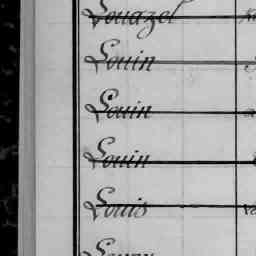 Louazel
Louin
Louin
Louin
Louis